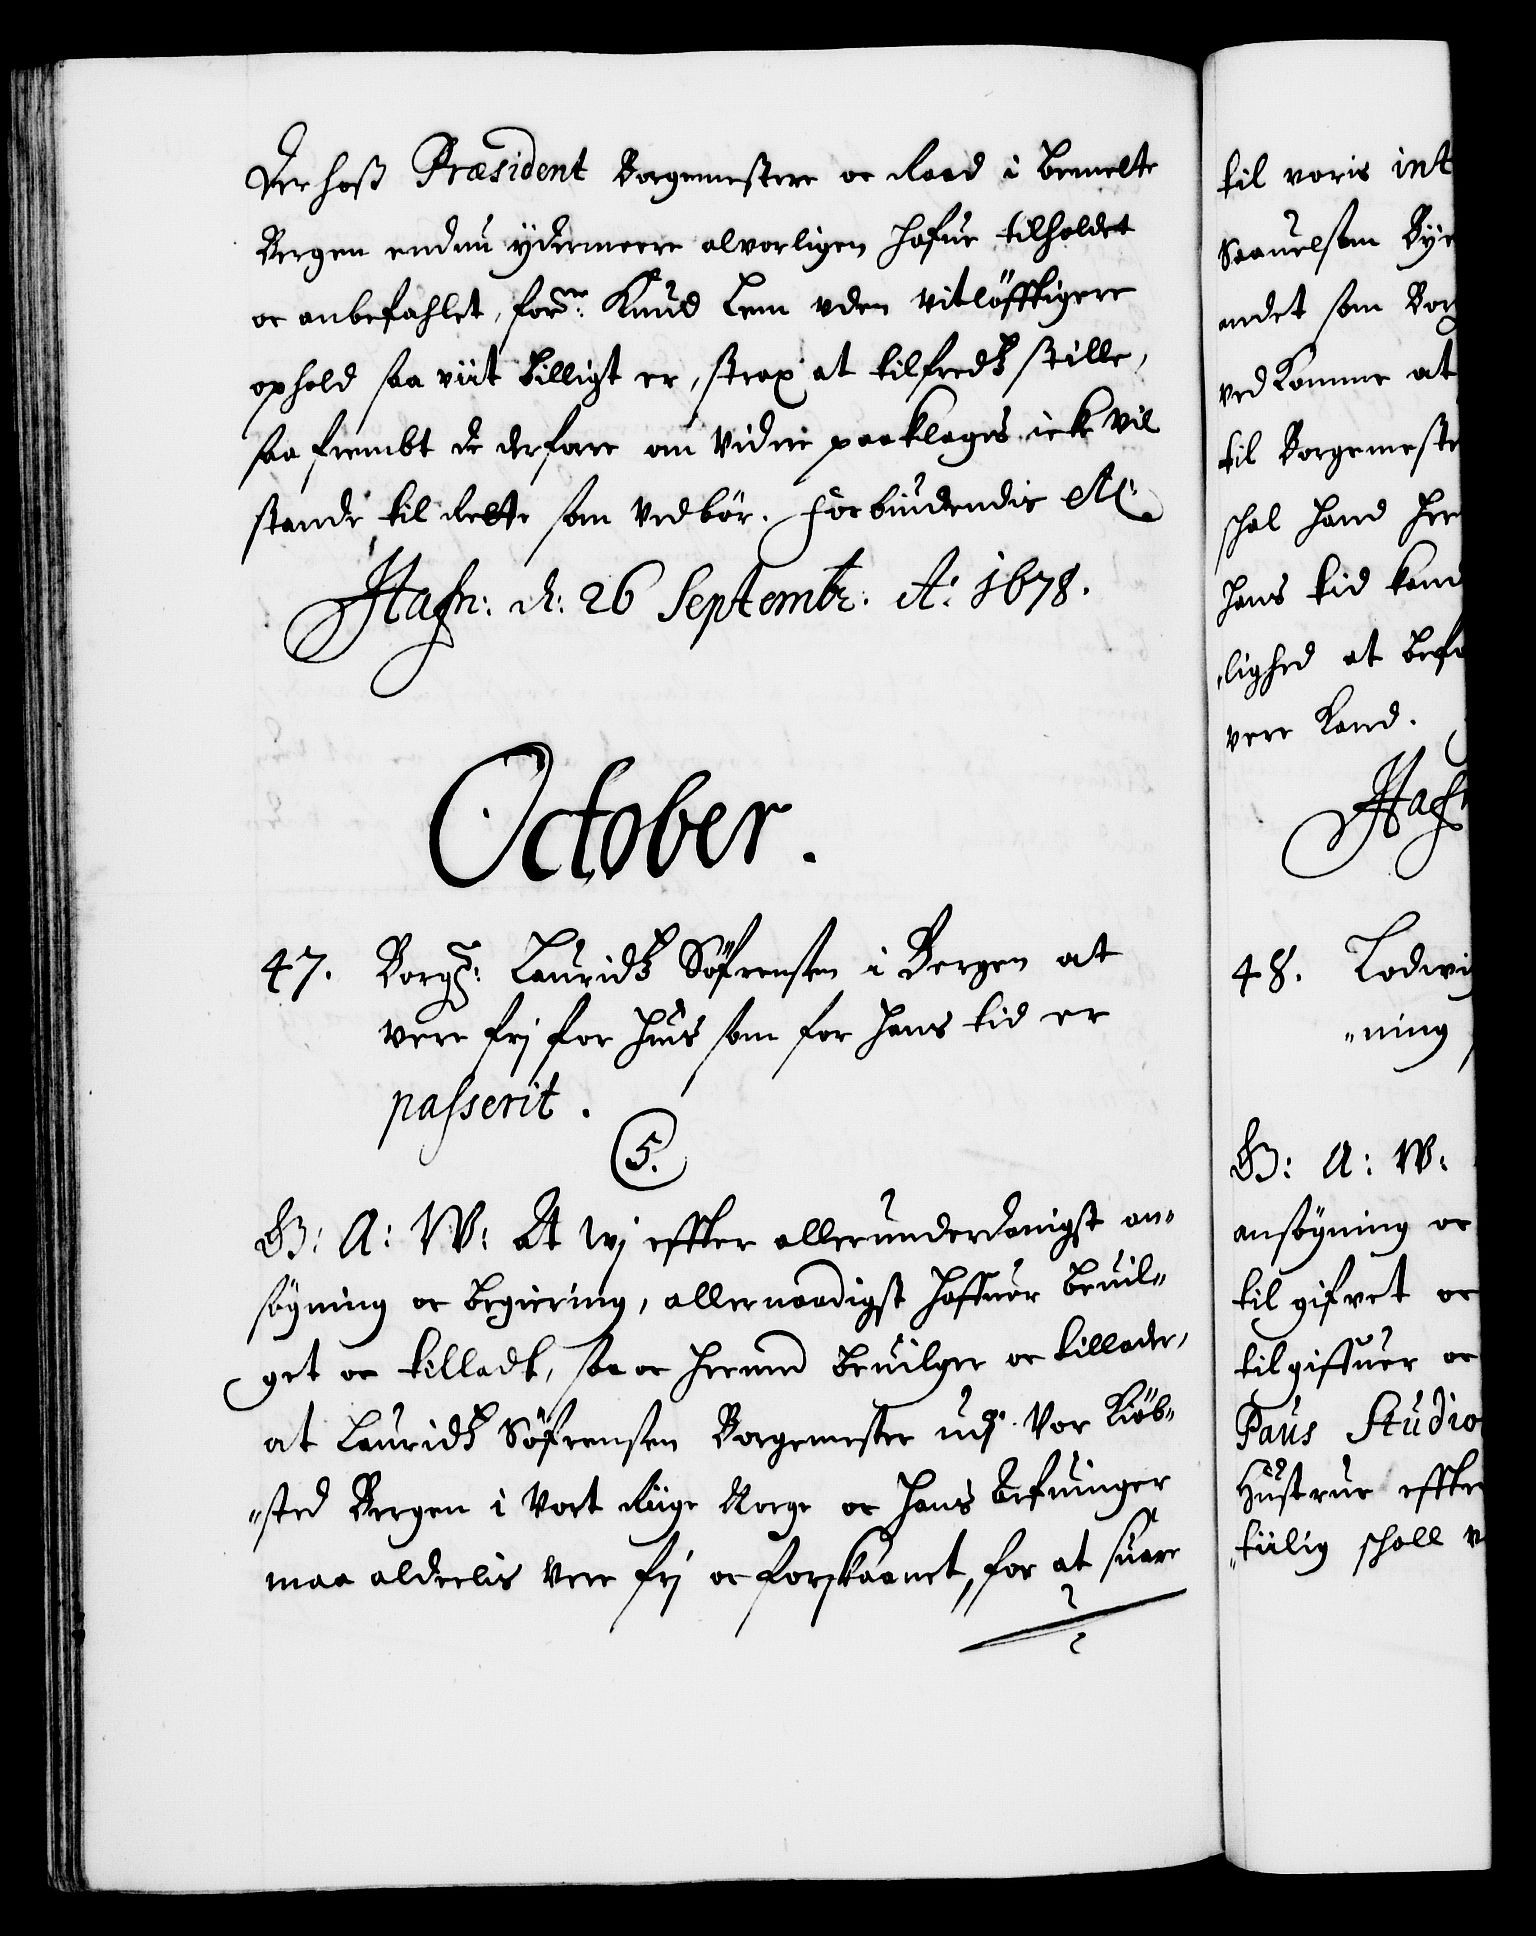 Derhoss Præsident Borgemestere oc Raad i bemelte
Bergen endnu ydermeere alvorligen hafue tilholdet
oc anbefahlet, forne: Knud Lem uden vitlöfftigere
ophold saa viit billigt er, strax at tilfredtz stille,
saa frembt de derfore om videre paaklages icke vil
stande til rette som vedbör. Forbiudendis etc.
Hafn: d: 26 Septembr: Ao: 1678.
October.
47. Borgr: Lauridtz Söfrensen i Bergen at
vere frj for huis som for hans tid er
passerit.
5.
G: A: W: At Wj effter allerunderdanigst an-
søgning oc begiering, allernaadigst haffuer bevil-
get oc tilladt, saa oc hermed bevilger oc tillader,
at Lauridtz Söfrensen Borgemester udj Vor Kiöb-
"sted Bergen i Vort Riige Norge oc hans Arfuinger
maa alderlis vere frj oc forskaanet, for at suare
til voris int
Sauelsom Bye
andet som Bor
vedkomme at
til Borgemeste
schal hand her
hans tid kand
"lighed at befa
vere kand.
Hafn
48. Lodwi
"ning
G: A: W:
ansögning oc
til gifvet oc
tilgiffuer oc
Paus Studio
Hustrue effter
"tiilig schall v